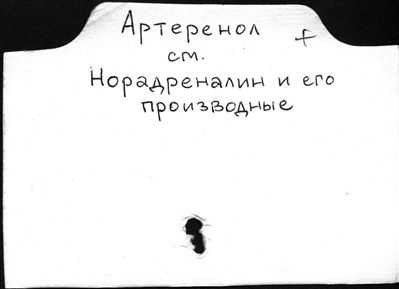 Артеренол +
см.
Норадреналин и его
производные